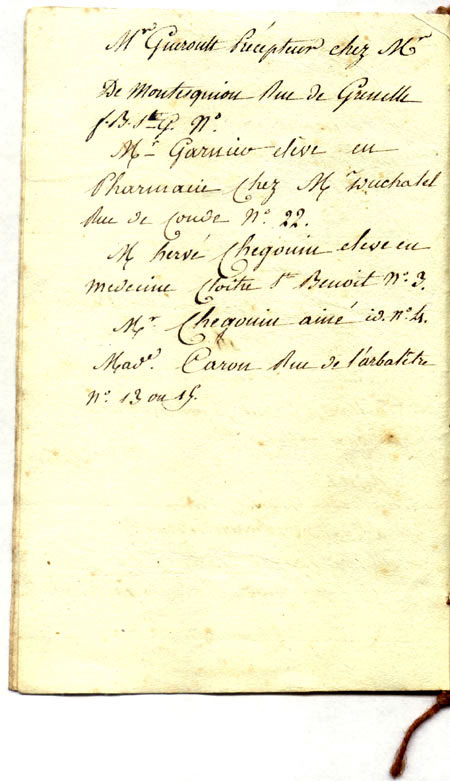 Mr Gueroult Précépteur chez Mr
De Montesquiou Rue de Grenelle
f. B. St G. No
Mr Garnier élève en
Pharmacie Chez Mr Duchatel
Rue de Condé No 22.
M hervé Chegouin eleve en
medecine Cloître St Benoit No 3.
Mr Chegouin ainé id. no 4.
Made Caron Rue de l'arbalètre
No 13 ou 15.